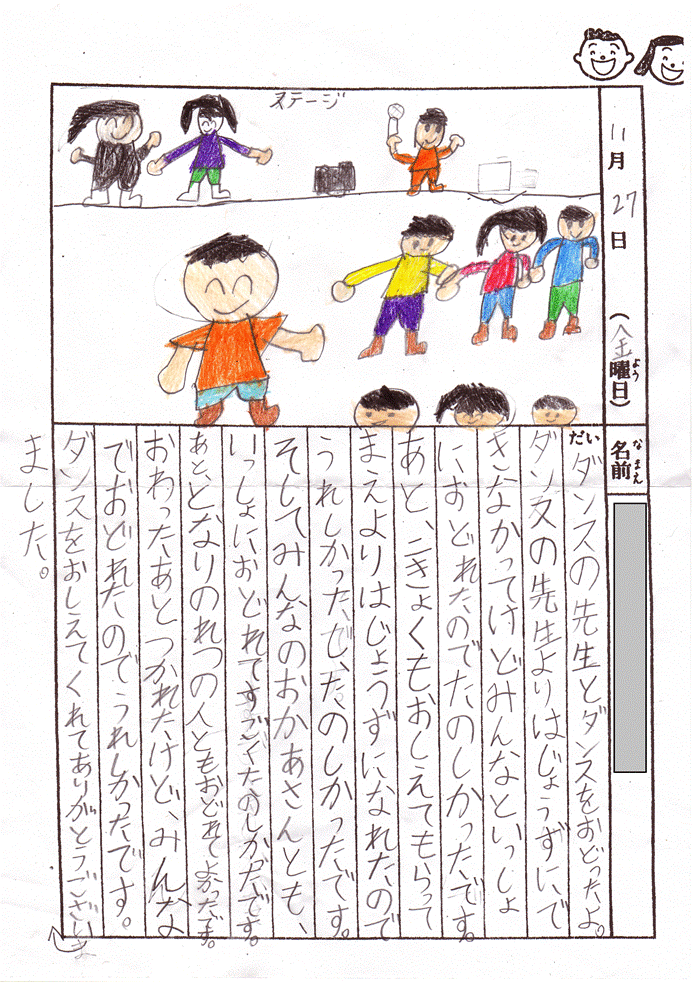 ステージ
11月27日(金曜日)
よう
名前
なまえ
だい ダンスの先生とダンスをおどったよ。
ダンスの先生よりはじょうずにで
きなかってけどみんなといっしょ
におどれたのでたのしかったです。
あと、二きょくも、おしえてもらって
まえよりはじょうずになれたので
うれしかったし、たのしかったです。
そしてみんなのおかあさんとも、
いっしょにおどれてすごくたのしかたです。
あととなりのれつの人ともおどれてよかったです。
おわったあと、つかれたけど、みんな
でおどれたのでうれしかったです。
ダンスをおしえてくれてありがとうございま
ました。